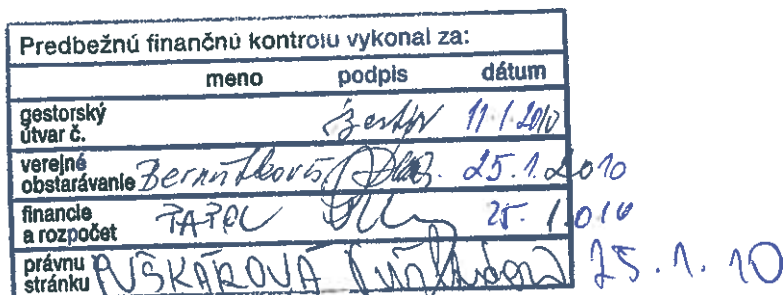 Predbežnú finančnú kontrolu vykonal za:
meno podpis dátum
gestorský
útvar č. 11.1.2010
verejné
obstarávanie 25.1.2010
financie
a rozpočet 25.
právnu
stránku PUŠKÁROVÁ 25.1.10